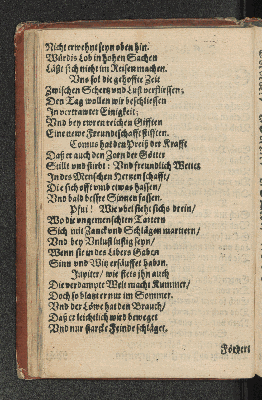 Nicht erwehnt seyn oben hin.
Würdis Lob in hohen Sachen
Läst sich nicht im Reisen machen.
Uns sol die gehoffte Zeit
Zwischen Schertz und Lust verfliessen;
Den Tag wollen wir beschliessen
In vertrawter Einigkeit;
Und bey ewren reichen Gifften
Eine newe Freundschafft stifften.
Comus hat den Preiß der Krafft
Daß er auch den Zorn der Götter
Stillt und stirbt: Und freundlich Wetter
In des Menschen Hertzen schafft/
Die sich offt umb etwas hassen/
Und bald bessre Sinnen fassen.
Pfui! Wie übel steht sichs drein/
Wo die ungemenschten Tattern
Sich mit Zanck und Schlägen martern/
Und bey Unlust lustig seyn/
Wenn sie in des Libers Gaben
Sinn und Witz ersäuffet haben.
Jupiter/ wie stets ihn auch
Die verdampte Welt macht Kummer/
Doch so blast er nur im Sommer.
Und der Löwe hat den Brauch/
Daß er leichtlich wird beweget
Und nur starcke Feinde schläget.
Fördert